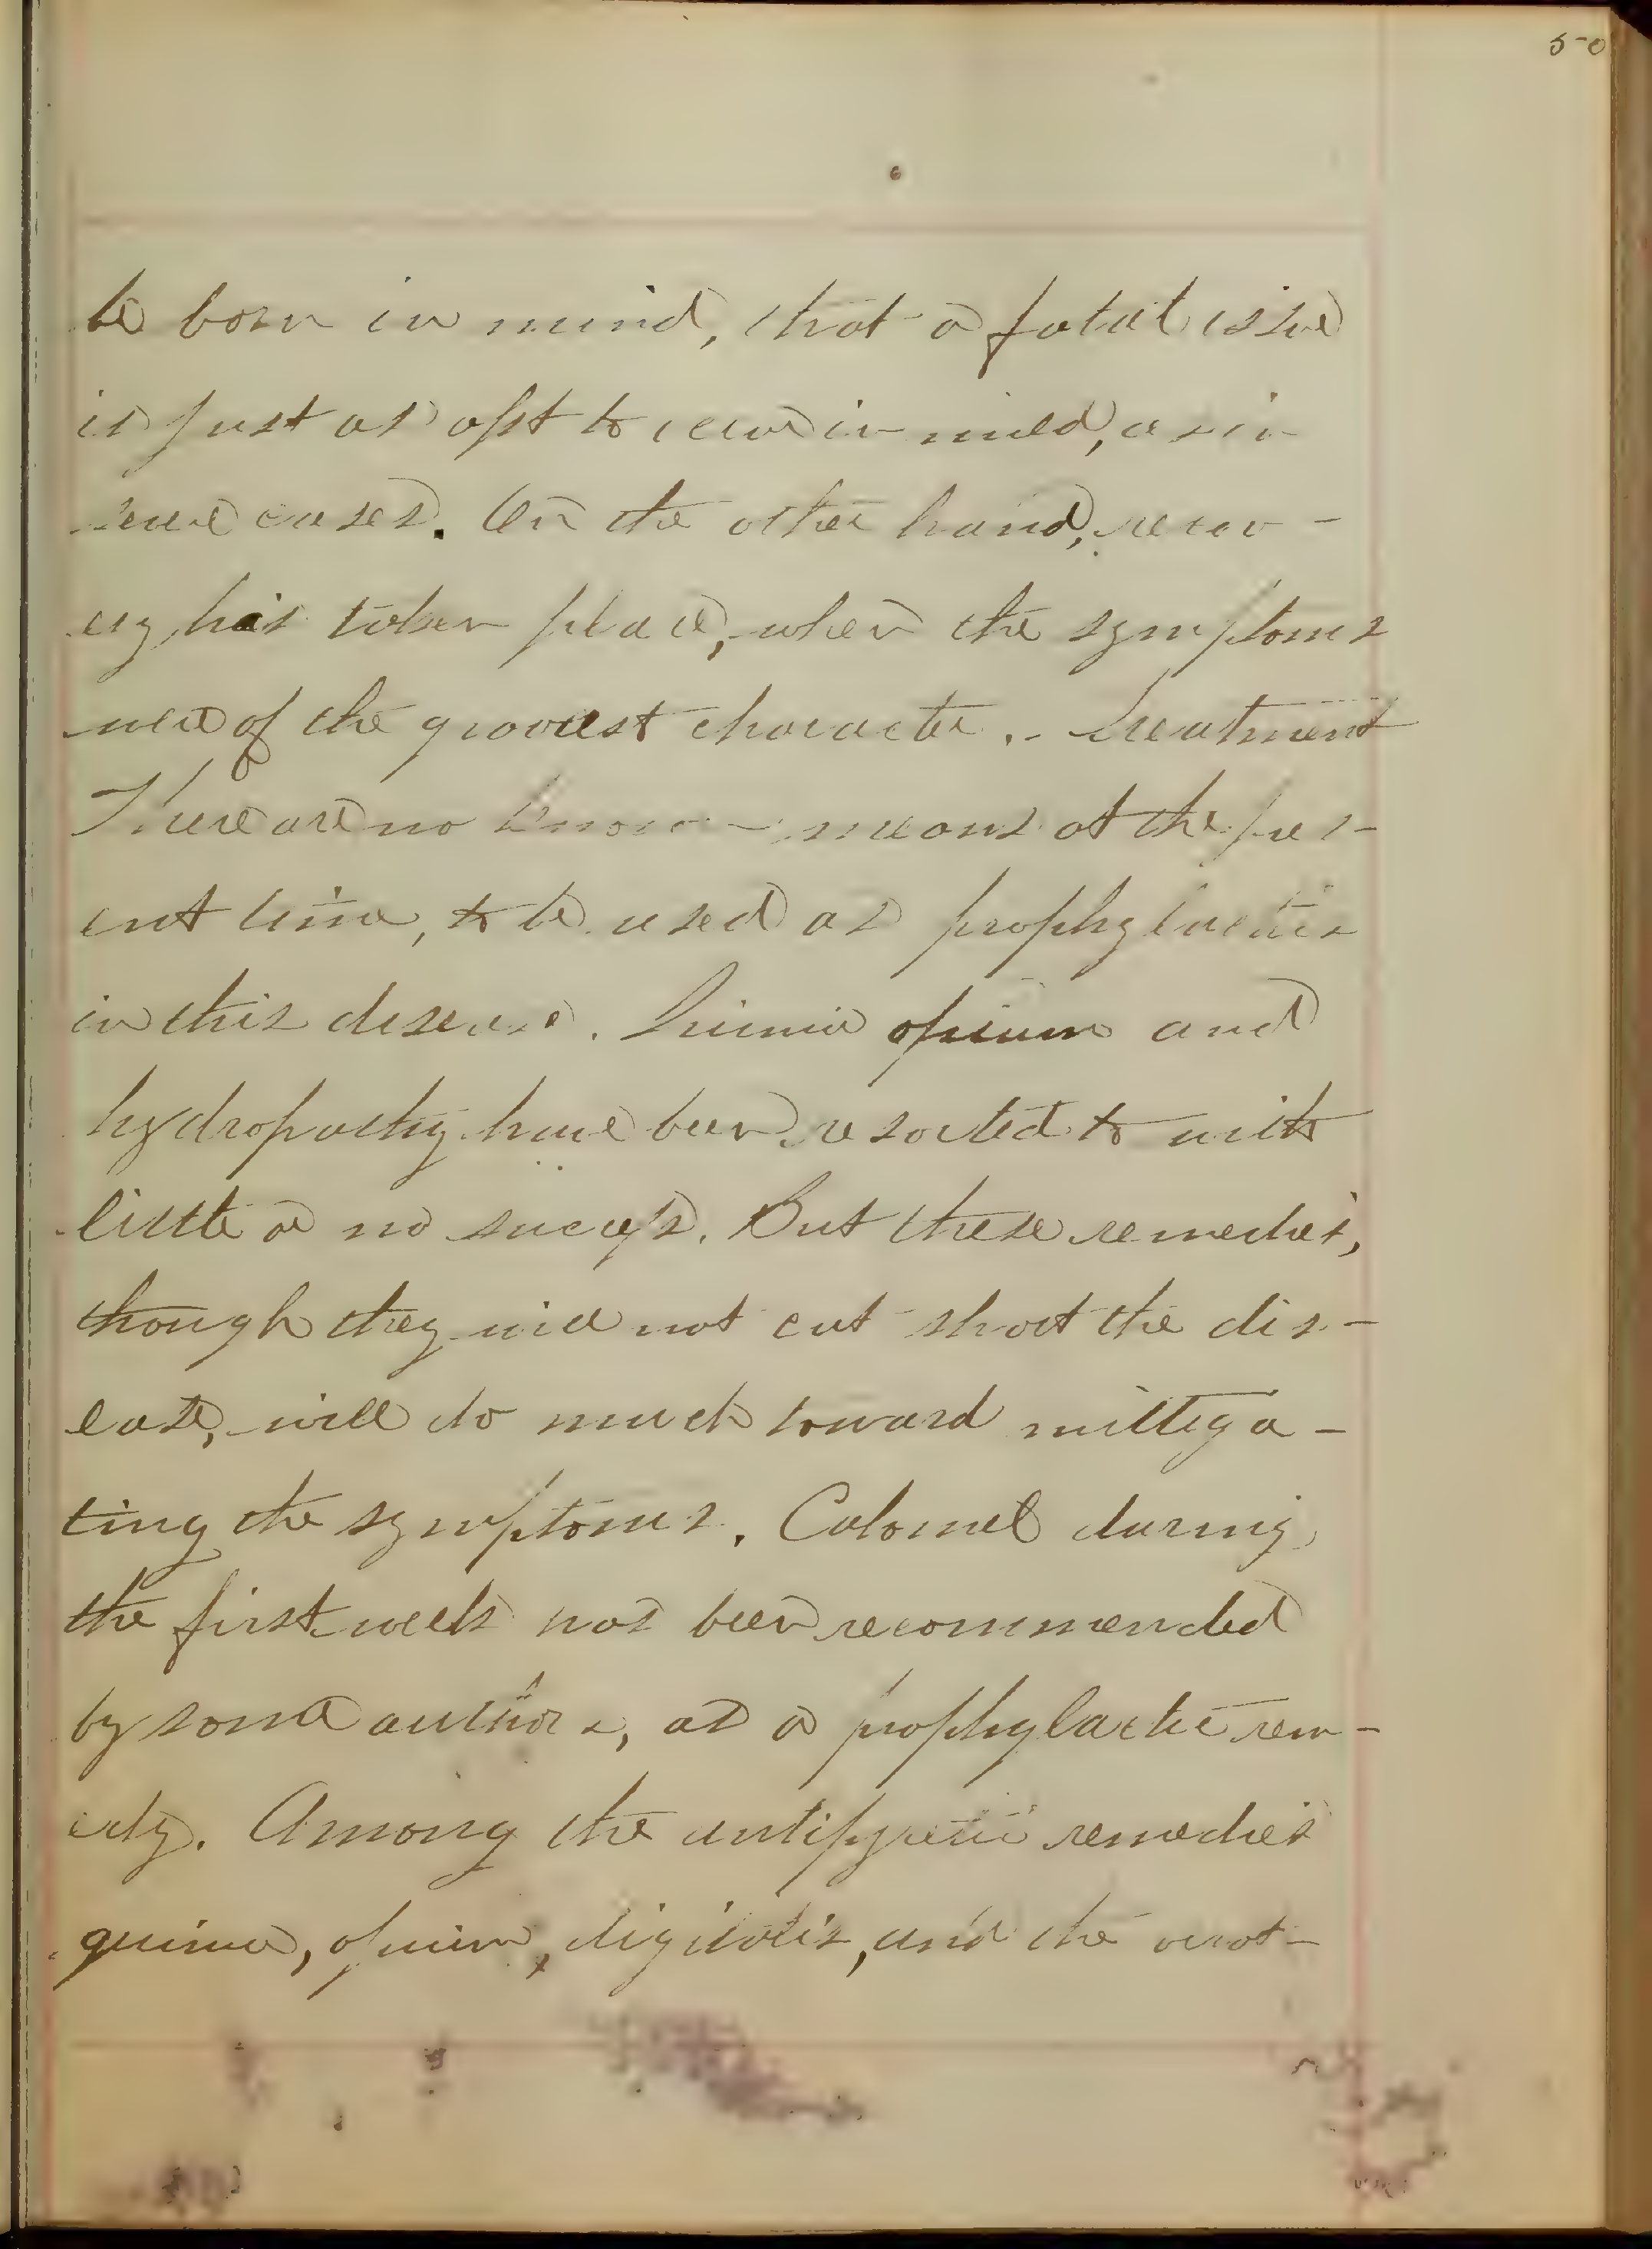 50
6
be born in mind, that a fatal issue
is just as apt to occur in mild, as in
severe cases. On the other hand, recov-
ery has taken place, when the symptoms
were of the gravest character. - Treatment
There are no known means at the pres-
ent time, to be used as prophylactics
in this disease. Quinia opium and
hydropathy have been resorted to with
little or no success. But these remedies,
though they will not cut short the dis-
ease, will do much toward mittiga-
ting the symptoms. Calomel during
the first week has been recommended
by some authors, as a prophylactic rem-
edy. Among the antipyretic remedies
quinia, opium, digitalis, and the verat-